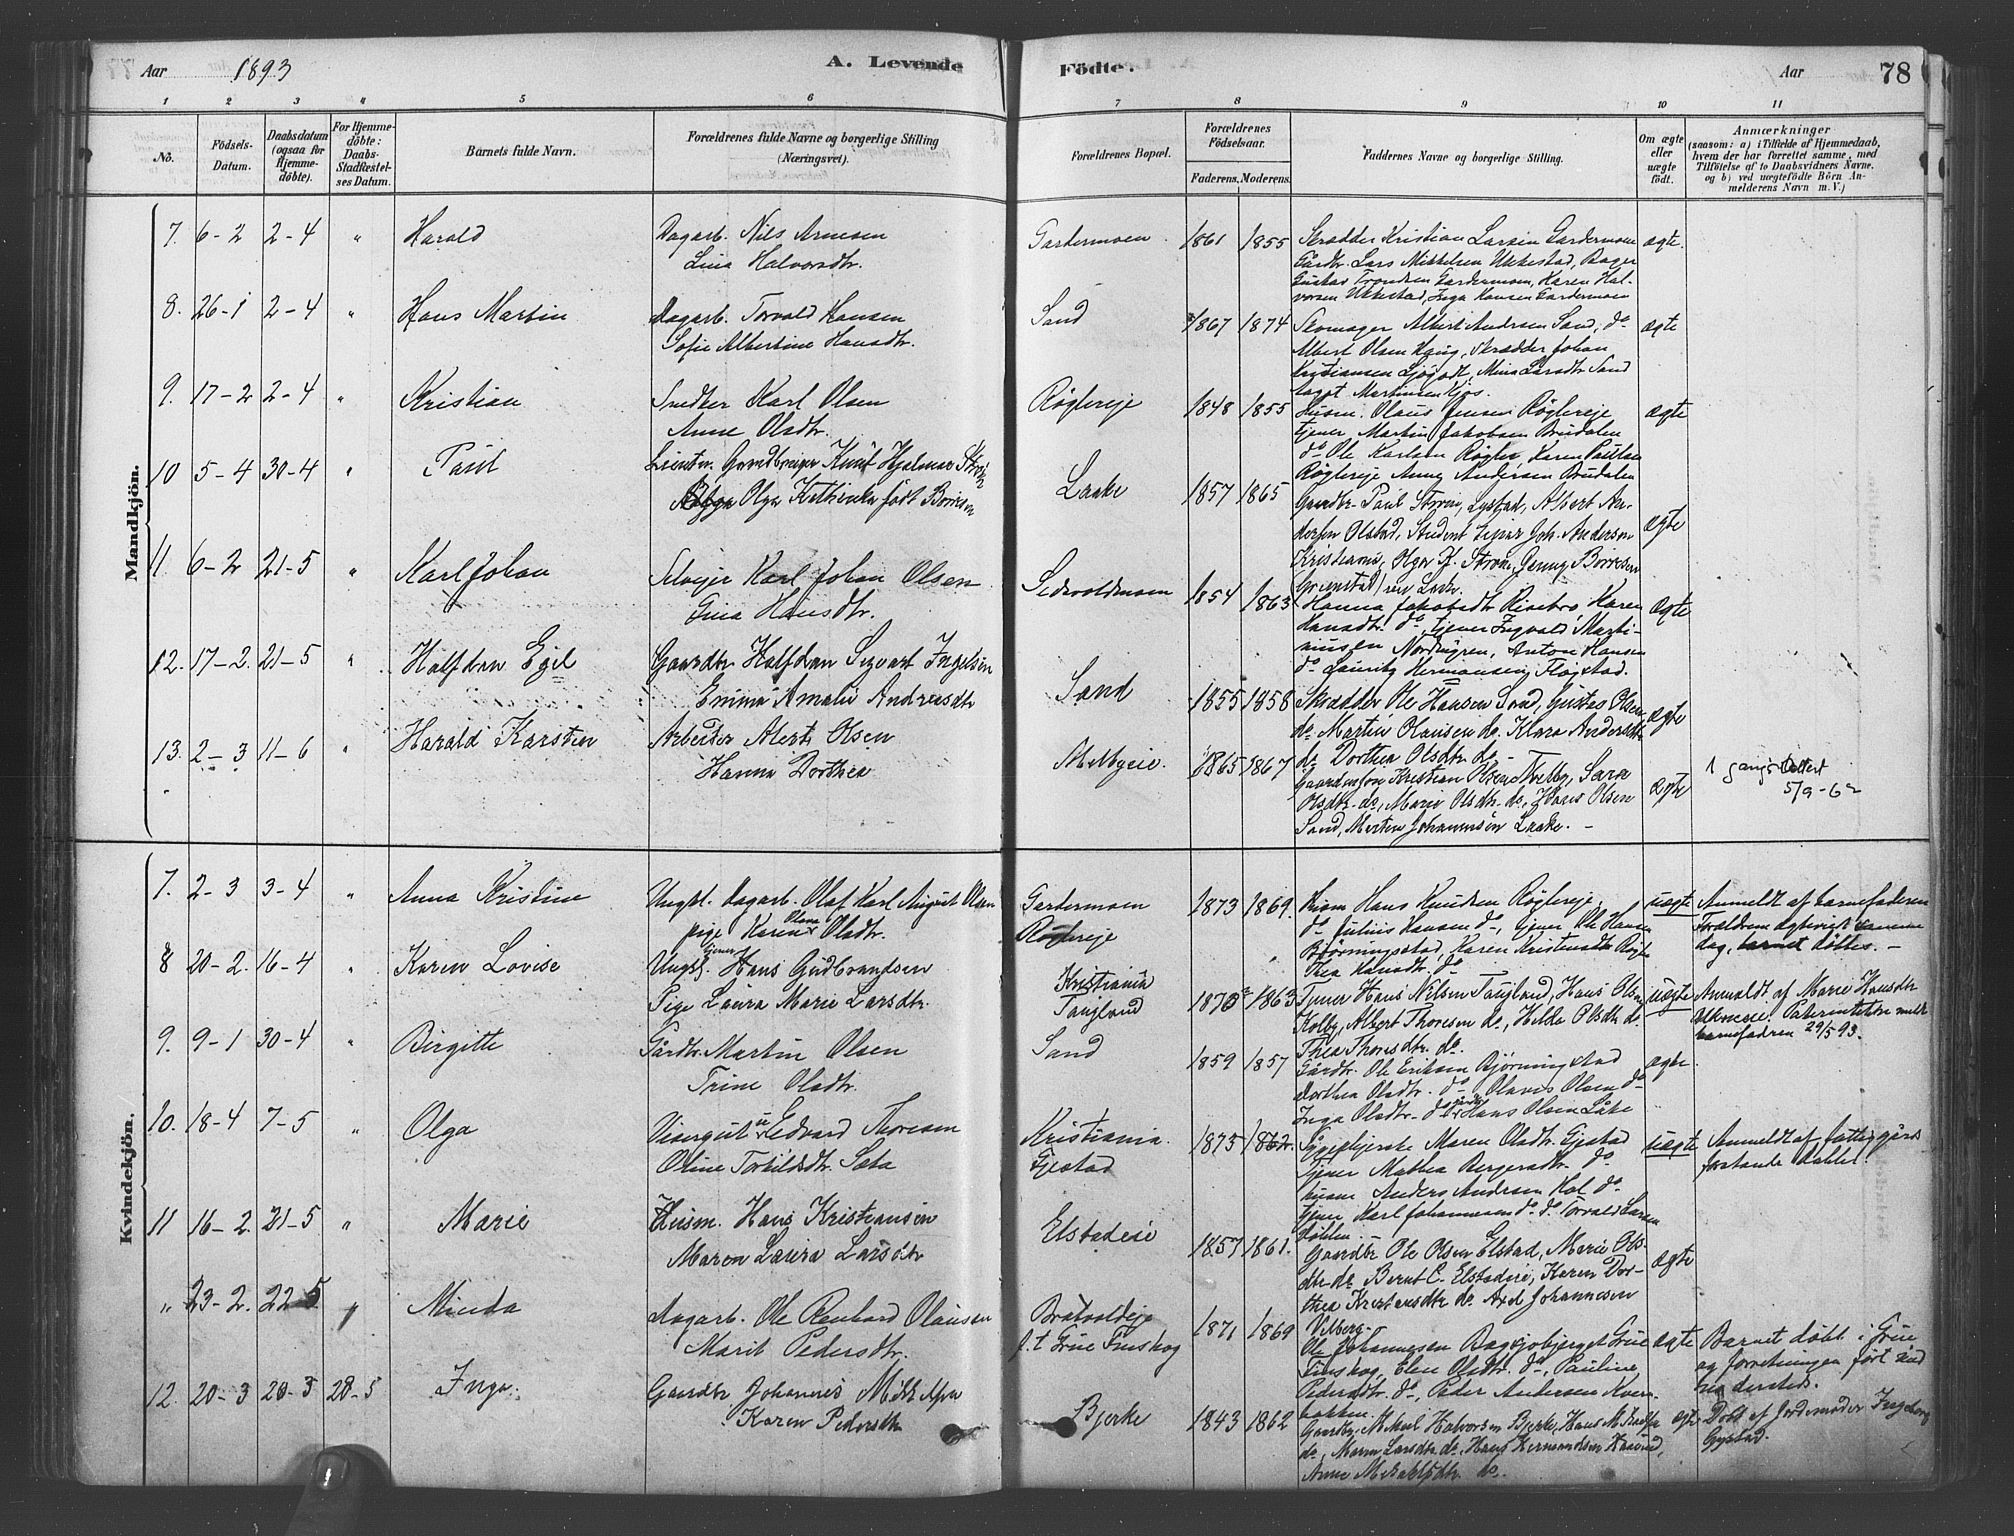 Aar 1893
A. Levende
Födte.
Aar
78
1 2 3 " 5 6 7 8 9 10 11
No.
Födsels-
Datum.
Daabsdatum
(ogsaa for
Hjemme-
döbte).
For Hjemme-
döbte:
Daabs-
Stadfæstel-
ses Datum.
Barnets fulde Navn.
Forældrenes fulde Navne og borgerlige Stilling
(Næringsvei).
Forældrenes Bopæl.
Forældrenes
Födselsaar.
Faderens. Moderens.
Faddernes Navne og borgerlige Stilling.
Om ægte
eller
uægte
født.
Anmærkninger
(saasom: a) i Tilfælde af Hjemmedaab,
hvem der har forrettet samme, med
Tilföielse af to Daabsvidners Navne.
og b) ved uægtefödte Börn An-
melderens Navn m. V.)
Mandkjön.
7. 6-2 2-4 " Harald
Dagarb. Nils Arnesen
Lina Halvorsdtr.
Gardermoen. 1861 1855
Skrædder Kristian Larsen Gardermoen
Gårdbr. Lars Mikkelsen Ukkestad, Bager
Gustav Trondsen Gardermoen, Karen Hal-
vorsen Ukkestad, Inga Hansen Gardermoen
ægte.
8. 26-1 2-4 " Hans Martin
Dagarb. Torvald Hansen
Sofie Albertine Hansdtr.
Sand 1867 1874
Skomager Albert Andersen Sand, do
Albert Olsen Haug, Skrædder Johan
Kristiansen, Mina Larsdtr Sand
Martinsen Kjos.
ægte
9. 17-2 2-4 " Kristian
Snedker Karl Olsen
Anne Olsdtr.
Røglereje 1848 1855
Husm. Olaus Jensen Røglereje
tjener Martin Jakobsen Brudalen
do Ole Karlsen Røgler Karen Paulsen
Røglereje Anne Andersen Brudalen
ægte
10 5-4 30-4 " Paul
Lieutn. Gaardbruger Knut Hjalmar Strøm
Olga Kathinka født Børresen
Laake 1857 1865
Gaardbr. Paul Strøm, Lystad, Albert An-
dersen Olstad, Student Einar Joh. Andersen
Kristiania, Olga Strøm, Jenny Børresen
Grimstad
ægte
11. 6-2 21-5 " Karl Johan
Selvejer Karl Johan Olsen
Gina Hansdtr.
1854 1863
Hanna Jakobsdtr Risebro Karen
Hansdtr. do, tjener Ingvald Marti-
niusen Nordengren, Anton Hansen
do Lauritz Hermansen, Flogstad.
ægte
12. 17-2. 21-5 " Halfdan Egil
Gaardbr Halfdan Sigvart Ingelsen
Emma Amalie Andreasdtr
Sand 1855 1858
Skrædder Ole Hansen Sand, Gustav Olsen
do, Martin Hansen do, Klara Andersdtr
do Dorthea Olsdtr do -
ægte
13. 2-3 11-6 " Harald Karsten
Arbeider Olsen
Hanna Dorthea
Melbyeie. 1865 1867
Gaardmandssøn Kristian Olsen Melby, Sara
Olsdtr. do, Marie Olsdtr. do, Hans Olsen
Sand, Morten Johannesen Laake. -
ægte
1 gangs
5/9-62
Kvindekjön.
7. 2-3 3-4 " Anna Kristine
Ungkl. Dagarb. Olaf Karl August Olsen
pige Karen Olava Olsdtr.
Gardermoen
1873 1869.
Husm Hans Knudsen Røglereje,
do Julius Hansen do, tjener Ole Hansen
Bjørningstad, Karen Kristiansdtr
Thea Hansdtr. do
uægte
Anmeldt af barnefaderen
Forældrene ægteviet samme
dag, barnet døbtes. -
8 20-2. 16-4 " Karen Lovise
Ungk. tjener Hans Gudbrandsen
Pige Laura Marie Larsdtr.
Kristiania
Tangland 1870 1863
Tjener Hans Nilsen Tangland, Hans Olsen
Kolby, Albert Thoresen do, Hilda Olsdtr do.
Thea Thoresdtr. do.
uægte
Anmeldt af Marie Hansdtr
barnefadren 29/5 93.
9. 9-1 30-4 " Birgitte
Gårdbr. Martin Olsen
Trine Olsdtr.
Sand 1859 1857
Gårdbr. Ole Eriksen Bjørningstad
Dorthea Olsdtr. do Olaves Olsen do
Inga Olsdtr. do Hans Olsen Låke
ægte.
10. 18-4 7-5 " Olga
Visergut Edvard Thoresen
Oline Torkildsdtr. Sata
Kristiania.
Gjestad 1873 1862.
Sygeplejerske Maren Olsdtr. Gjestad
Tjener Mathea Bergersdtr. do
husm Anders Andersen Hol do
tjener Karl Johannesen do do Torvald Larsen
uægte
Anmeldt af fattiggårds
11 16-2. 21-5 " Marie
Husm. Hans Kristiansen
Maren Laura Larsdtr
Elstadeie 1857 1861.
Gaardbr Ole Olsen Elstad, Marie Ols-
dtr do Bernt C. Elstadeie, Karen Dor-
thea Kristiansdtr do Axel Johannesen
Vilberg.
ægte
" 23-2. 22-5 " Minda
Dagarb. Ole Reinhard Olausen
Marit Pedersdtr.
Bråtvoldeje
f.t Grue Finskog 1871 1869
Ole Johannesen Grue
Finskog, Eline Olsdtr. do, Pauline
Pedersdtr. do, Peder Andersen Kvern-
bakken
ægte
Barnet døbt i Grue
og forretningen ført ind
hos dersteds.
12. 20-3 20-3 28-5 Inga.
Gaardbr Johannes Mikkelsen
Karen Pedersdtr
Bjerke 1843 1862
Gaardbr. Mikael Halvorsen Bjerke, Hans M.
do, Maren Larsdtr. do, Hans Hermandsen
Anne do.
ægte
Døbt af Jordemoder Ingeborg
Gystad.